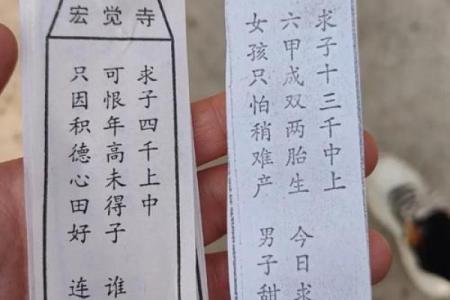 宏觉寺
求子四千上中
可恨年高未得子 谁
只因积德心田好 连
求子十三千中上
六甲成双两胎生 今日求
女孩只怕稍难产 男子甜